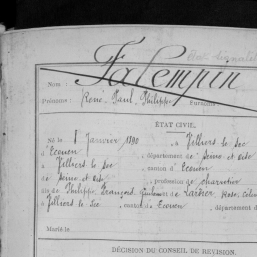 Nom : Falempin
Prénoms : René Paul Philippe Surnoms :
ÉTAT CIVIL.
Né le 8 Janvier 1890, à Villiers le Sec
d'Ecouen, département de Seine et Oise
à Villiers le Sec, canton d'Ecouen
de Seine et Oise, profession de charretier
fils de Philippe François et de
Villiers le Sec, canton d'Ecouen, département d
Marié le
DÉCISION DU CONSEIL DE RÉVISION.